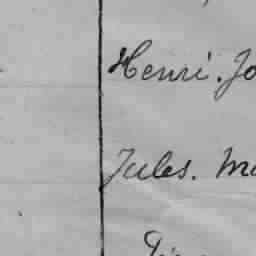 Henri. Jo
Jules. Ma